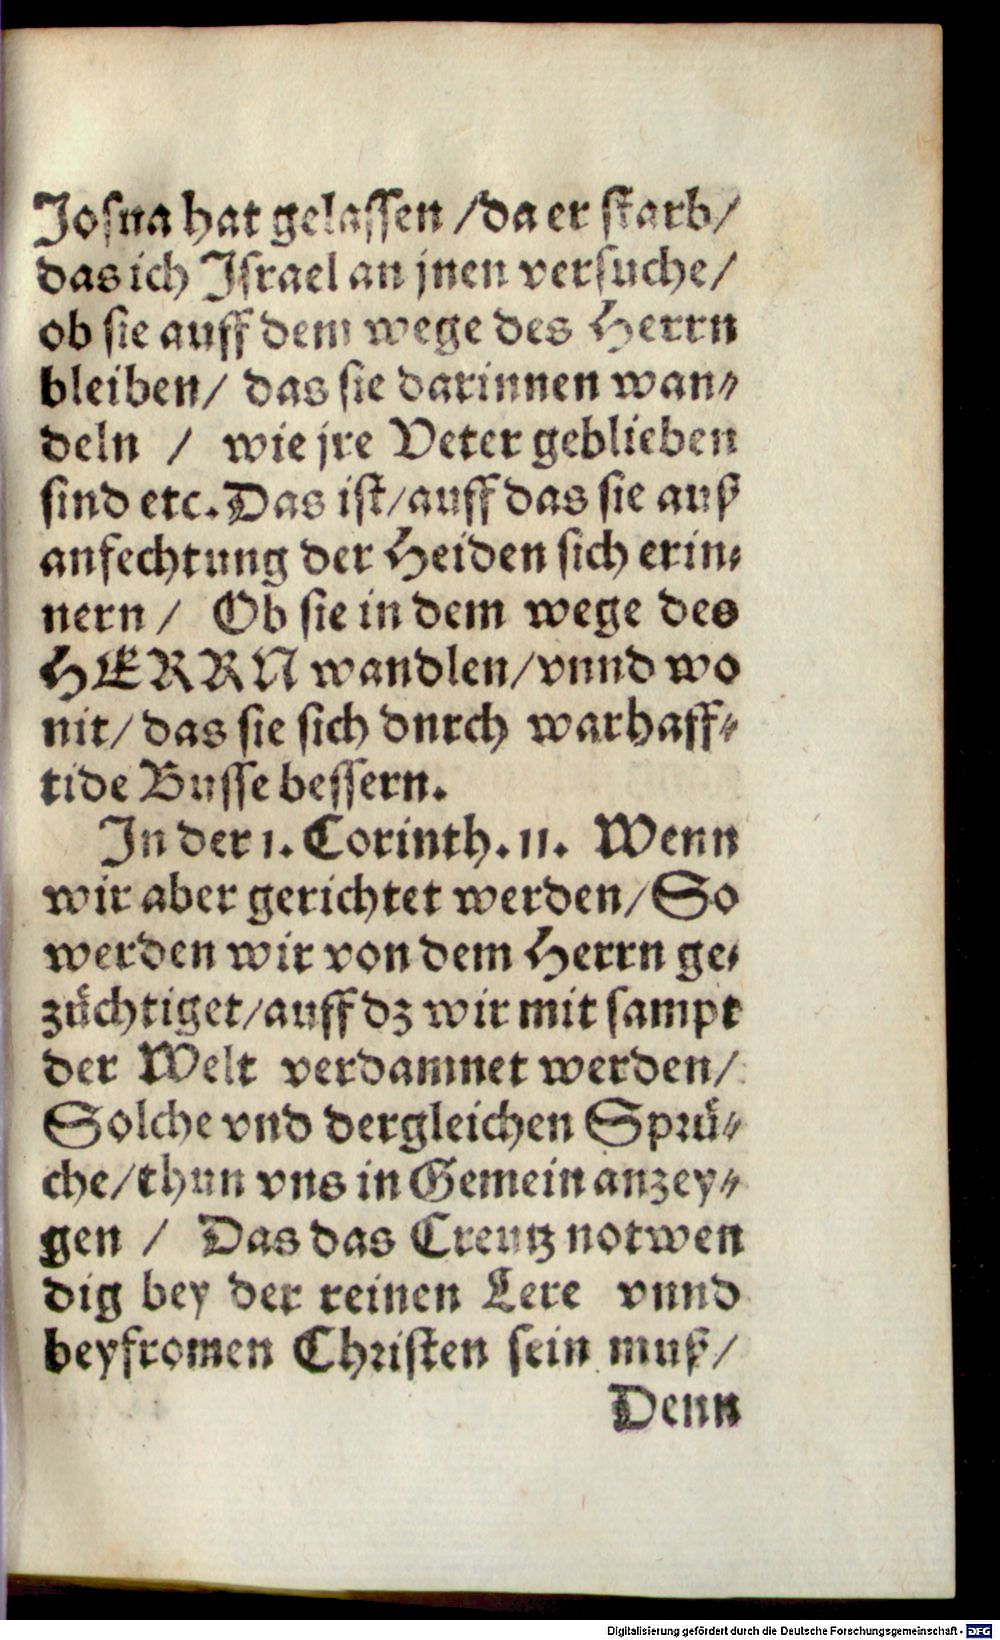 Josua hat gelassen / da er starb /
das ich Jsrael an jnen versuche /
ob sie auff dem wege des Herrn
bleiben / das sie darinnen wan⸗
deln / wie jre Veter geblieben
sind etc. Das ist / auff das sie auß
anfechtung der Heiden sich erin⸗
nern / Ob sie in dem wege des
HERRN wandlen / vnnd wo
nit / das sie sich dnrch warhaff⸗
tide Busse bessern.
Jn der 1. Corinth. 11. Wenn
wir aber gerichtet werden / So
werden wir von dem Herrn ge⸗
züchtiget / auff dz wir mit sampt
der Welt verdamnet werden /
Solche vnd dergleichen Sprü⸗
che / thun vns in Gemein anzey⸗
gen / Das das Creutz notwen
dig bey der reinen Lere vnnd
beyfromen Christen sein muß /
Denn
Digitalisierung gefördert durch die Deutsche Forschungsgemeinschaft - DFG